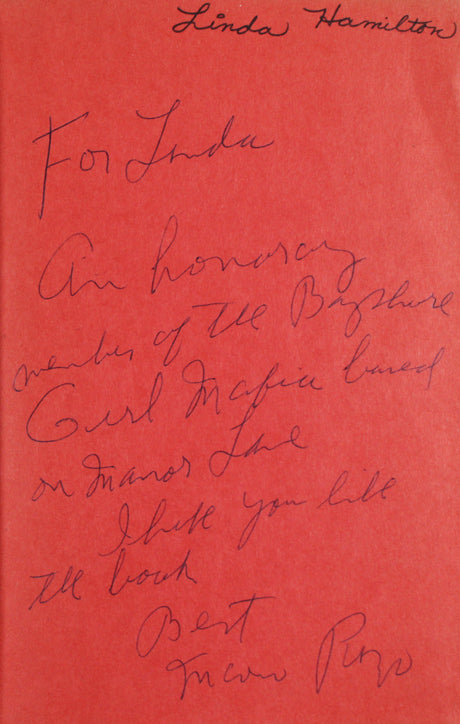 Linda Hamilton
For Linda
An honorary
member of the Bayshore
Girl Mafia based
on Manor Lane
I hope you like
the book
Best
Mario Puzo